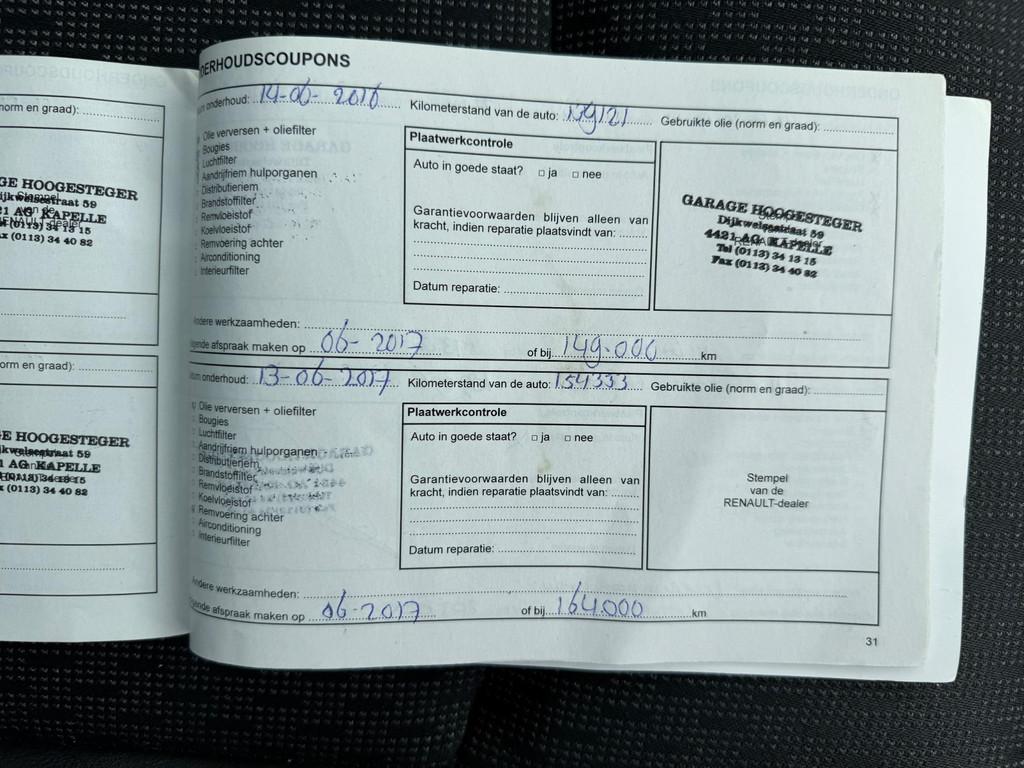 norm en graad):
GE HOOGESTEGER
ijkwelsestraat 59
21 AG KAPELLE
(0113) 34 13 15
x (0113) 34 40 82
orm en graad):
E HOOGESTEGER
jkwelsestraat 59
1 AG KAPELLE
(0113) 34 13 15
x (0113) 34 40 82
DERHOUDSCOUPONS
onderhoud: 14-06-2016 Kilometerstand van de auto: 139121 Gebruikte olie (norm en graad):
Olie verversen + oliefilter
Bougies
Luchtfilter
Aandrijfriem hulporganen
Distributieriem
Brandstoffilter
Remvloeistof
Koelvloeistof
Remvoering achter
Airconditioning
Interieurfilter
Plaatwerkcontrole
Auto in goede staat? ja nee
Garantievoorwaarden blijven alleen van
kracht, indien reparatie plaatsvindt van:
Datum reparatie:
GARAGE HOOGESTEGER
Dijkwelsestraat 59
4421 AG KAPELLE
RENAULT-dealer
Tel (0113) 34 13 15
Fax (0113) 34 40 82
Andere werkzaamheden:
gende afspraak maken op 06-2017 of bij 149.000 km
um onderhoud: 13-06-2017 Kilometerstand van de auto: 154333 Gebruikte olie (norm en graad):
Olie verversen + oliefilter
Bougies
Luchtfilter
Aandrijfriem hulporganen
Distributieriem
Brandstoffilter
Remvloeistof
Koelvloeistof
Remvoering achter
Airconditioning
Interieurfilter
Plaatwerkcontrole
Auto in goede staat? ja nee
Garantievoorwaarden blijven alleen van
kracht, indien reparatie plaatsvindt van:
Datum reparatie:
Stempel
van de
RENAULT-dealer
Andere werkzaamheden:
gende afspraak maken op 06-2017 of bij 164000 km
31